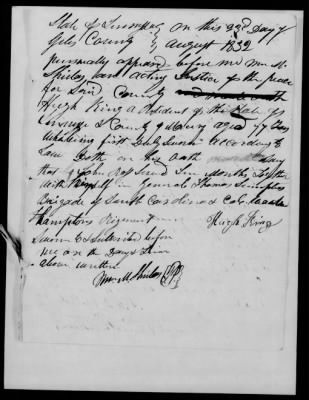 State of Tennessee } on this 22d Day of
Giles County } August 1832
personally appeared before me Wm M.
an acting Justice of the peace
for Said County
Hugh King a Resident of the State of
County of Maury aged 77
first Duly Sworn according to
Law Doth on his oath Say
that John Served Months
With himself in General Thomas Sumpters
Brigade of South Carolina & Col.
Hamptons Regiment
Hugh King
Sworn & Subscribed before
me on the Day & Year
above written
Wm M.